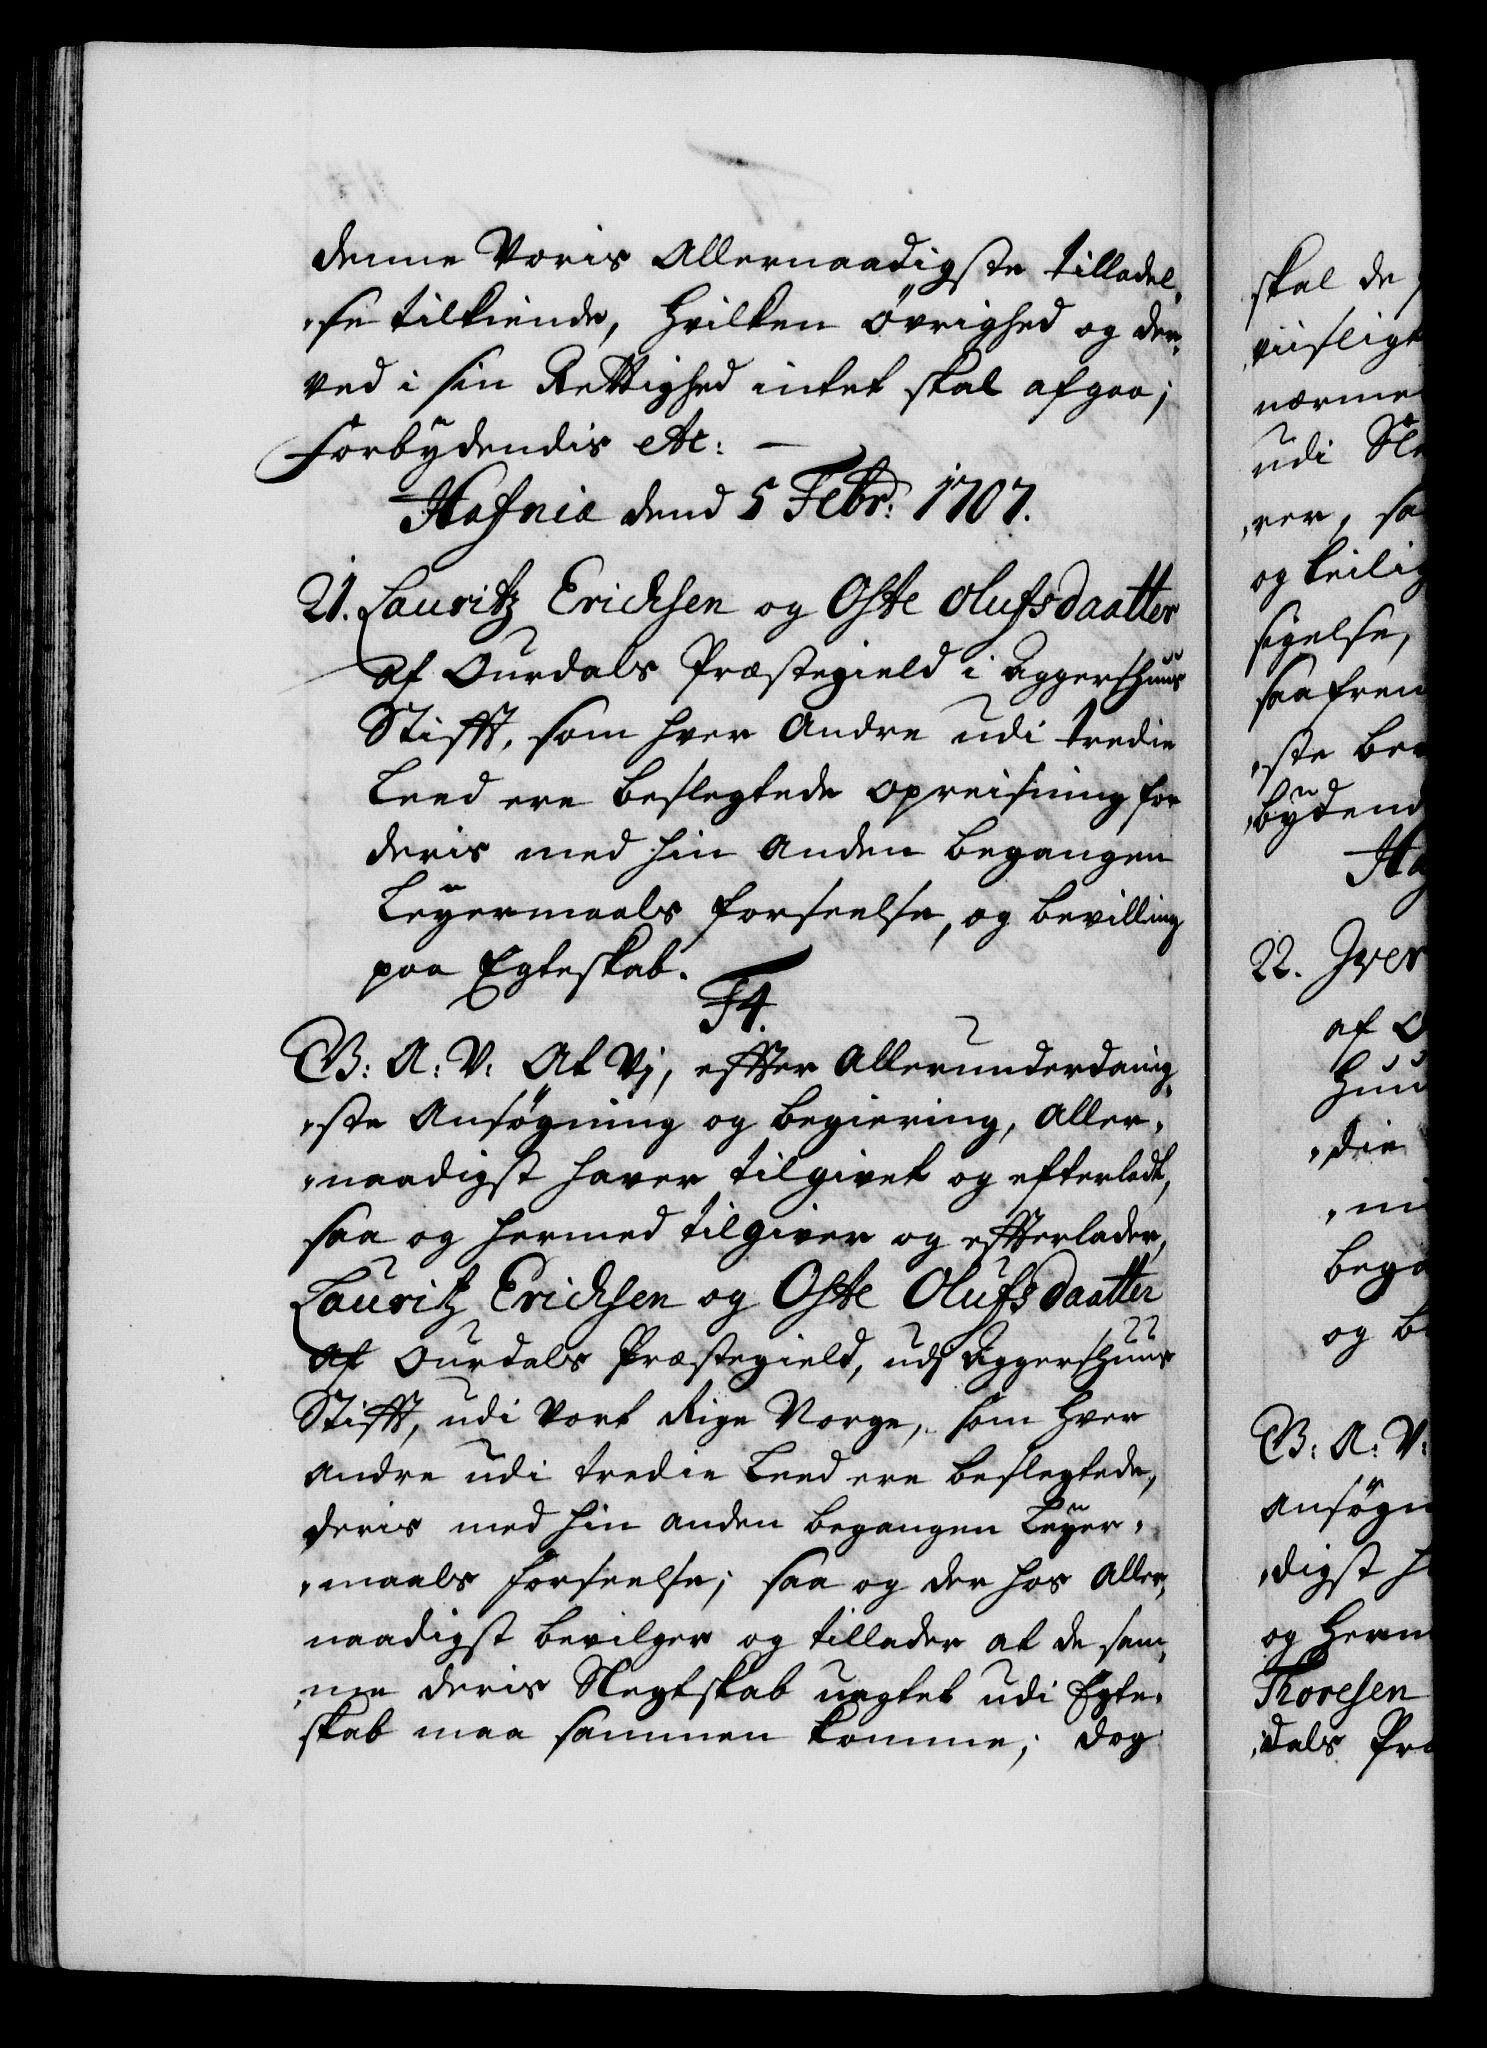 denne Voris Allernaadigste tilladel,
,se tilkiende, hvilken Øvrighed og der,
ved i sin Rettighed intet skal afgaa;
Forbydendis etc: —
Hafnia dend 5 Febr: 1707.
21. Lauritz Erichsen og Oste Olufsdaatter
af Ourdals Præstegield i Aggershuus
Stifft, som hver Andre udi tredie
Leed ere beslegtede opreisning for
deris med hin Anden begangen
Leyermaals forseelse, og bevilling
paa Egteskab.
F4.
G: A: V: At Vj, effter Allerunderdanig,
,ste Ansøgning og begiering, Aller,
,naadigst haver tilgivet og efterladt,
saa og hermed tilgiver og effterlader,
Lauritz Erichsen og Oste Olufsdaatter
af Ourdals Præstegield, udj Aggershuus
Stifft, udi vort Rige Norge, som hver
andre udi tredie Leed ere beslegtede,
deris med hin anden begangen Leyer,
,maals forseelse; saa og der hos Aller,
naadigst bevilger og tillader at de sam,
,me deris Slegtskab uagtet udi Egte,
skab maa sammen komme; dog
skal de
viisligt
nærme
udi Sle
,rer, sa
og leilig
sigelse,
saafrem
,ste bev
,bydend
Ha
22. Iver
af O
huu
,die
,m
bega
og b
G: A: V:
Ansøgn
,digst h
og herm
Thoresen
,dals Præ